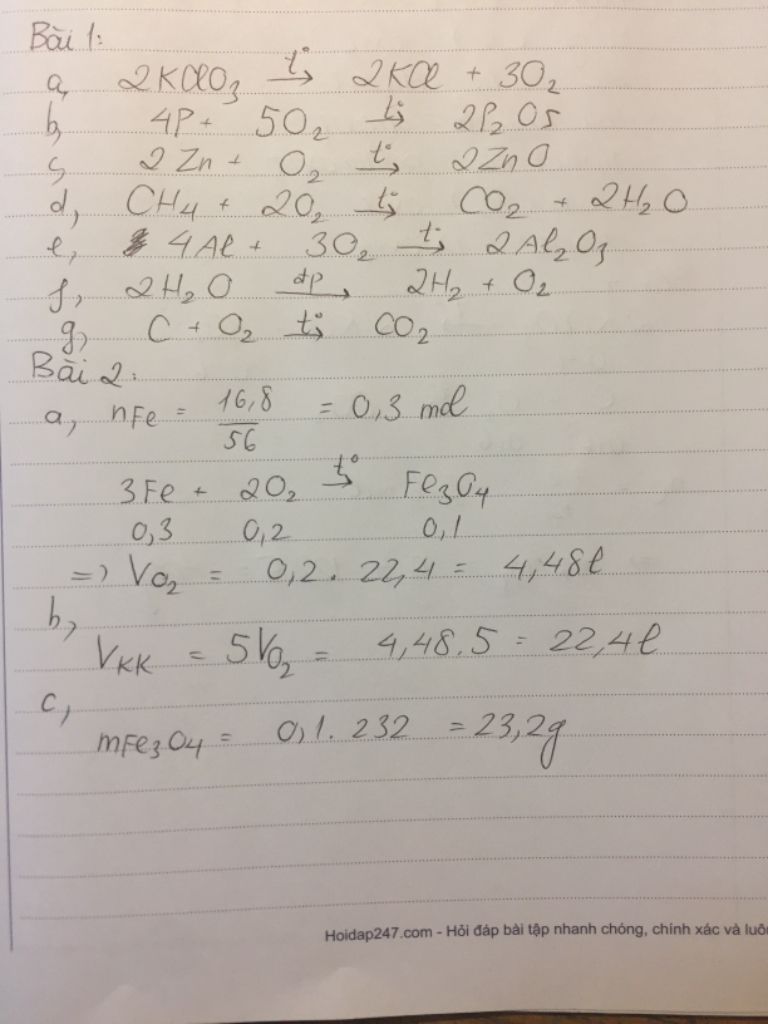 Bài 1:
a, 2KClO3 t°→ 2KCl + 3O2
b, 4P + 5O2 t°→ 2P2O5
c, 2Zn + O2 t°→ 2ZnO
d, CH4 + 2O2 t°→ CO2 + 2H2O
e, 4Al + 3O2 t°→ 2Al2O3
f, 2H2O đp→ 2H2 + O2
g, C + O2 t°→ CO2
Bài 2:
a, nFe = 16,8/56 = 0,3 mol
3Fe + 2O2 t°→ Fe3O4
0,3 0,2 0,1
=> VO2 = 0,2 . 22,4 = 4,48l
b,
VKK = 5VO2 = 4,48.5 = 22,4l
c,
mFe3O4 = 0,1. 232 = 23,2g
Hoidap247.com - Hỏi đáp bài tập nhanh chóng, chính xác và